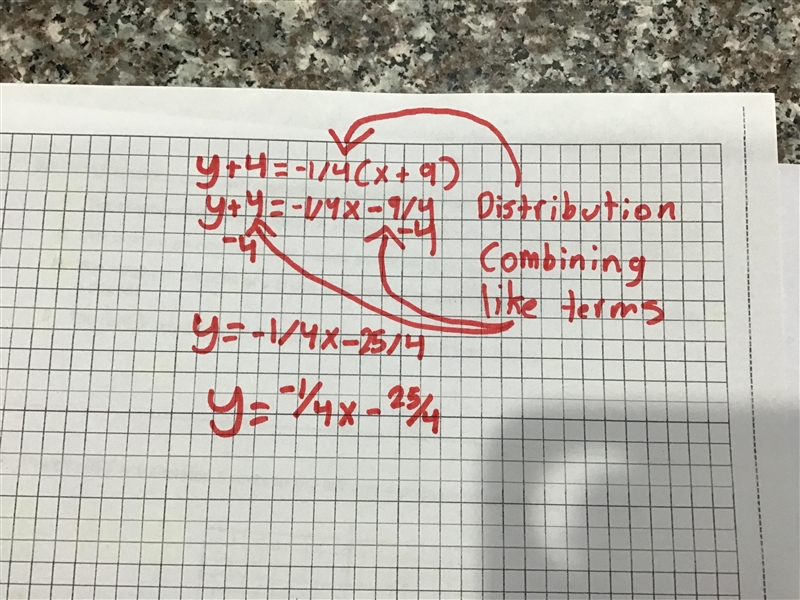 y+4=-1/4(x+9)
y+4=-1/4x-9/4 Distribution
-4 -4
Combining
like terms
y=-1/4x-25/4
y=-1/4x-25/4